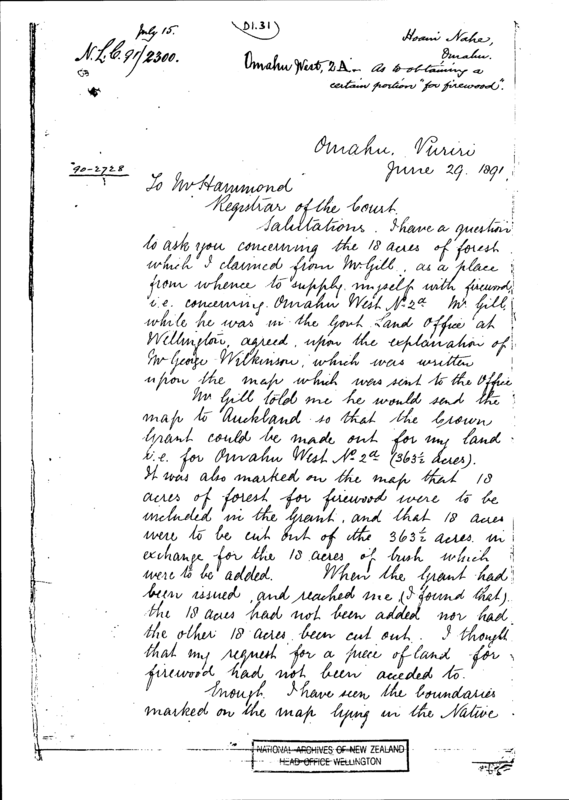 July 15.
D1.31
N.L.C. 91/2300.
Hoani Nahe,
Omahu.
Omahu West, 2A - As to obtaining a
certain portion "for firewood".
Omahu, Puriri
June 29. 1891.
90-2728
1
To Mr Hammond
Registrar of the Court.
Salutations. I have a question
to ask you concerning the 18 acres of forest
which I claimed from Mr Gill, as a place
from whence to supply myself with firewood
i.e. concerning Omahu West No 2a Mr Gill
while he was in the Govt Land Office at
Wellington, agreed, upon the explanation of
Mr George Wilkinson, which was written
upon the map which was sent to the Office
Mr Gill told me he would send the
map to Auckland so that the Crown
Grant could be made out for my land
i.e. for Omahu West No 2a (363½ acres).
It was also marked on the map that 18
acres of forest for firewood were to be
included in the Grant, and that 18 acres
were to be cut out of the 363½ acres in
exchange for the 18 acres of bush which
were to be added. When the Grant had
been issued, and reached me (I found that)
the 18 acres had not been added nor had
the other 18 acres been cut out. I thought
that my request for a piece of land for
firewood had not been acceded to.
Enough. I have seen the boundaries
marked on the map lying in the Native
NATIONAL ARCHIVES OF NEW ZEALAND
HEAD OFFICE WELLINGTON